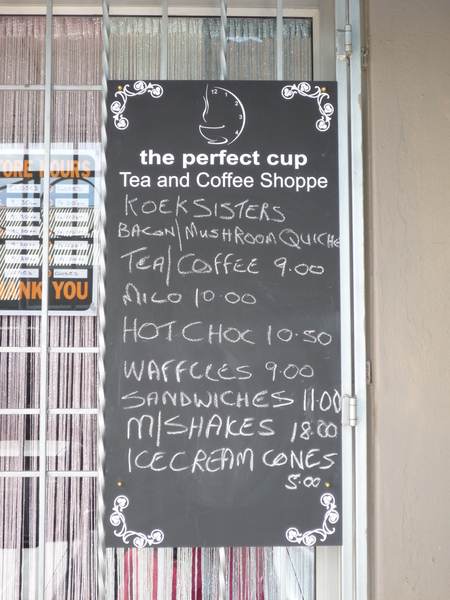 12
2
3
4
the perfect cup
Tea and Coffee Shoppe
KOEKSISTERS
BACON/MUSHROOM QUICHE
TEA/COFFEE 9.00
MILO 10.00
HOT CHOC 10.50
WAFFLES 9.00
SANDWICHES 11.00
M/SHAKES 18.00
ICECREAM CONES
5.00
TORE HOURS
ANK YOU